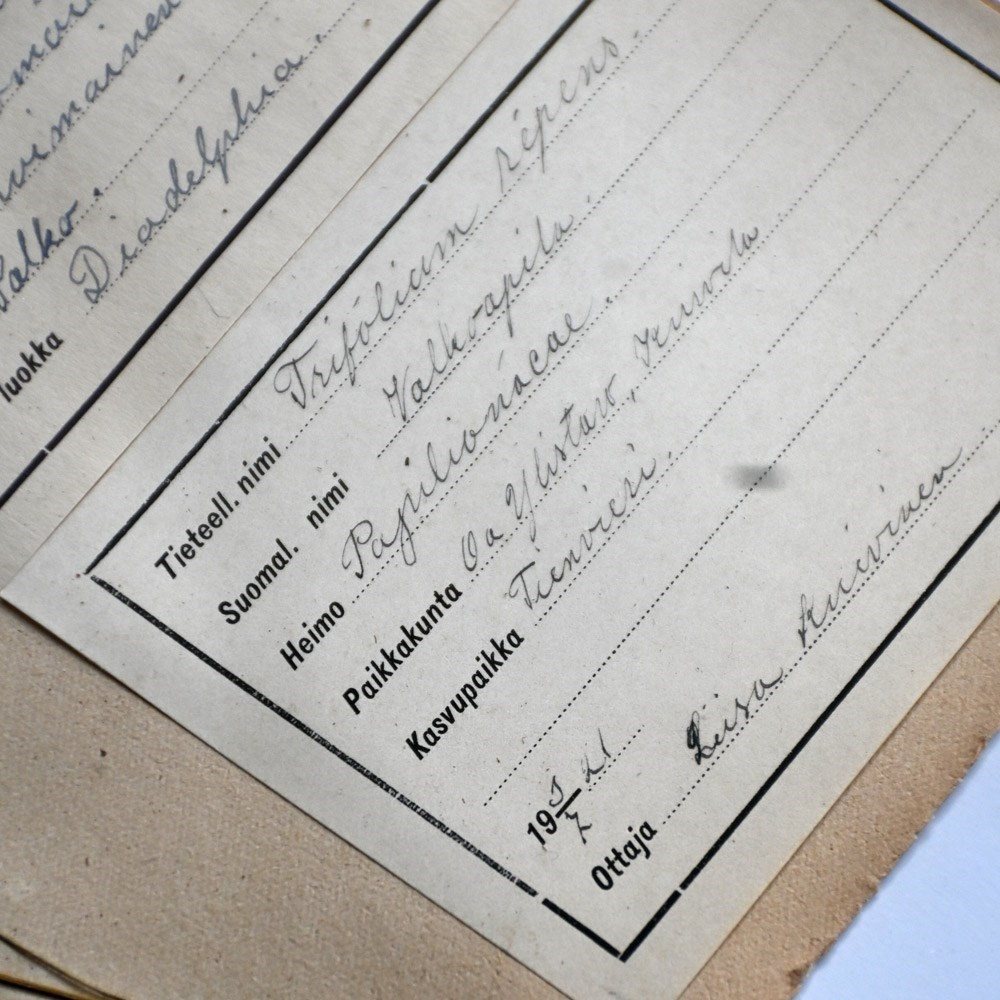 Palko.
luokka Diadelphia.
Tieteell. nimi Trifolium répens.
Suomal. nimi Valkoapila.
Heimo Papilionácae.
Paikkakunta Oa Ylistaro,
Kasvupaikka Tienvieri.
19 5/7 21
Ottaja Liisa